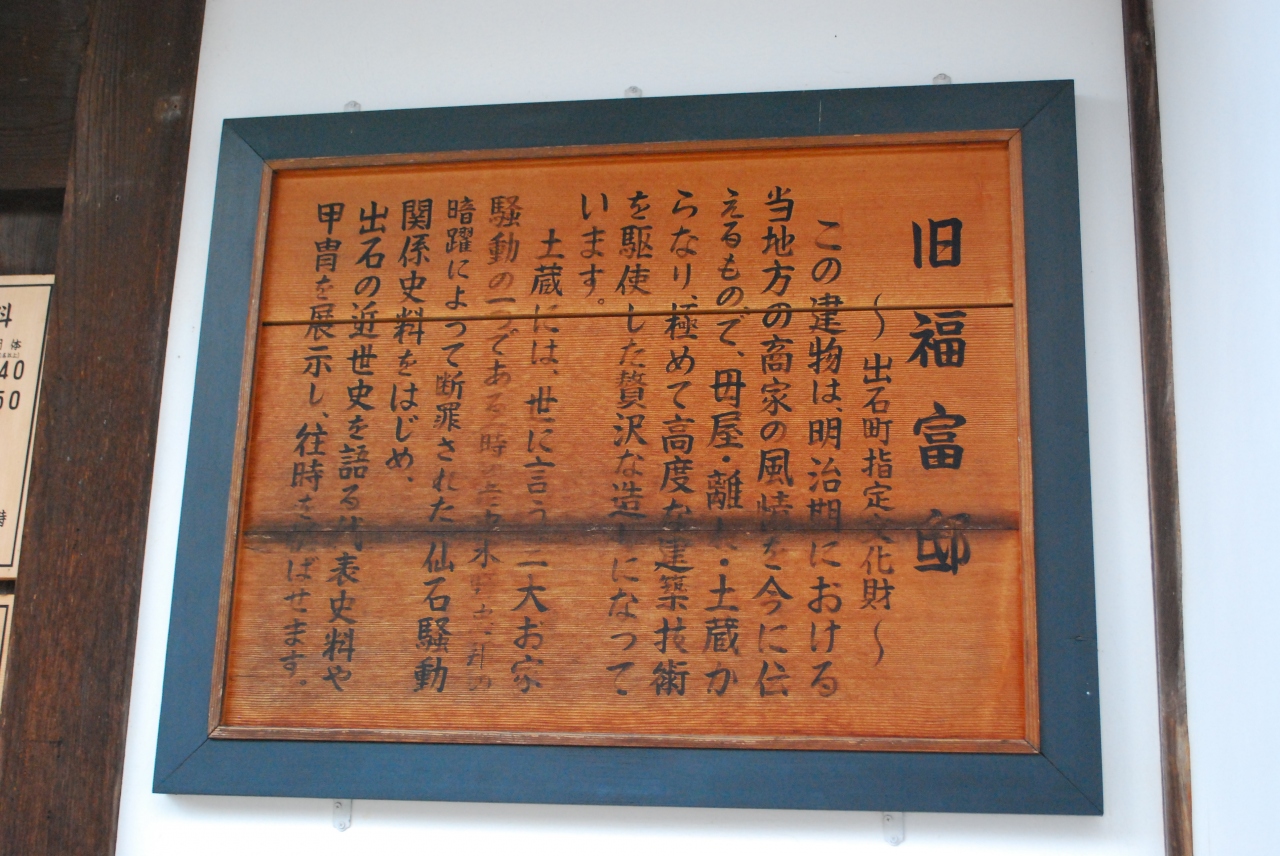 旧福富邸
～出石町指定文化財～
この建物は、明治期における
当地方の商家の風情を今に伝
えるもので、母屋・離れ・土蔵か
らなり、極めて高度な建築技術
を駆使した贅沢な造りになって
います。
土蔵には、世に言う三大お家
騒動の一つである時の
暗躍によって断罪された仙石騒動
関係史料をはじめ、
出石の近世史を語る代表史料や
甲冑を展示し、往時をしのばせます。
料
団体
40
50